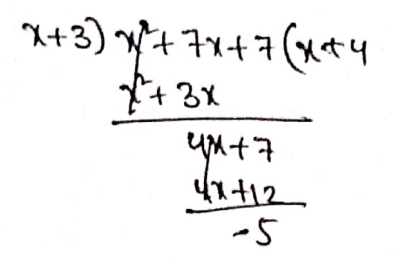 x+3) x²+7x+7 (x+4
x²+3x
4x+7
4x+12
-5